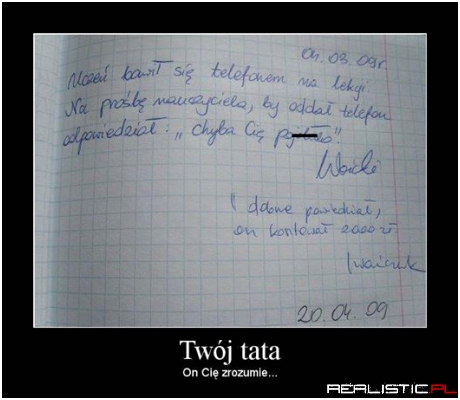 01.03.09r
Uczeń bawił się telefonem na lekcji.
Na prośbę nauczyciela, by oddał telefon
odpowiedział: „Chyba Cię
" dobrze powiedział,
on kosztował 2000 zł.
20.04.09
Twój tata
On Cię zrozumie...
REALISTIC.PL